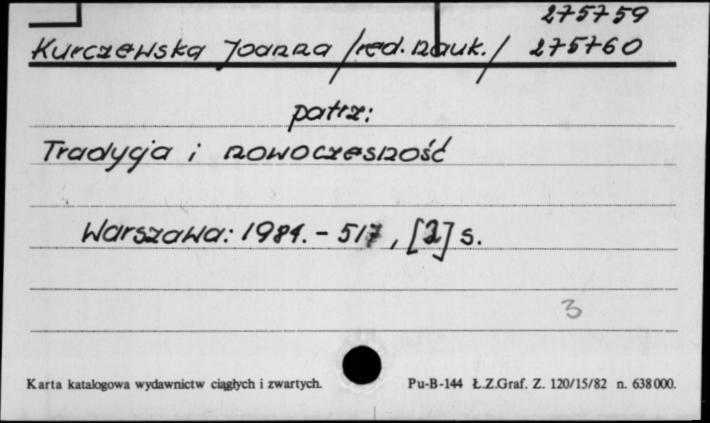 275759
Kurczewska Joanna /red. nauk./ 275760
patrz:
Tradycja i nowoczesność
Warszawa: 1984. - 517, [2] s.
3
Karta katalogowa wydawnictw ciągłych i zwartych. Pu-B-144 Ł.Z.Graf. Z. 120/15/82 n. 638000.